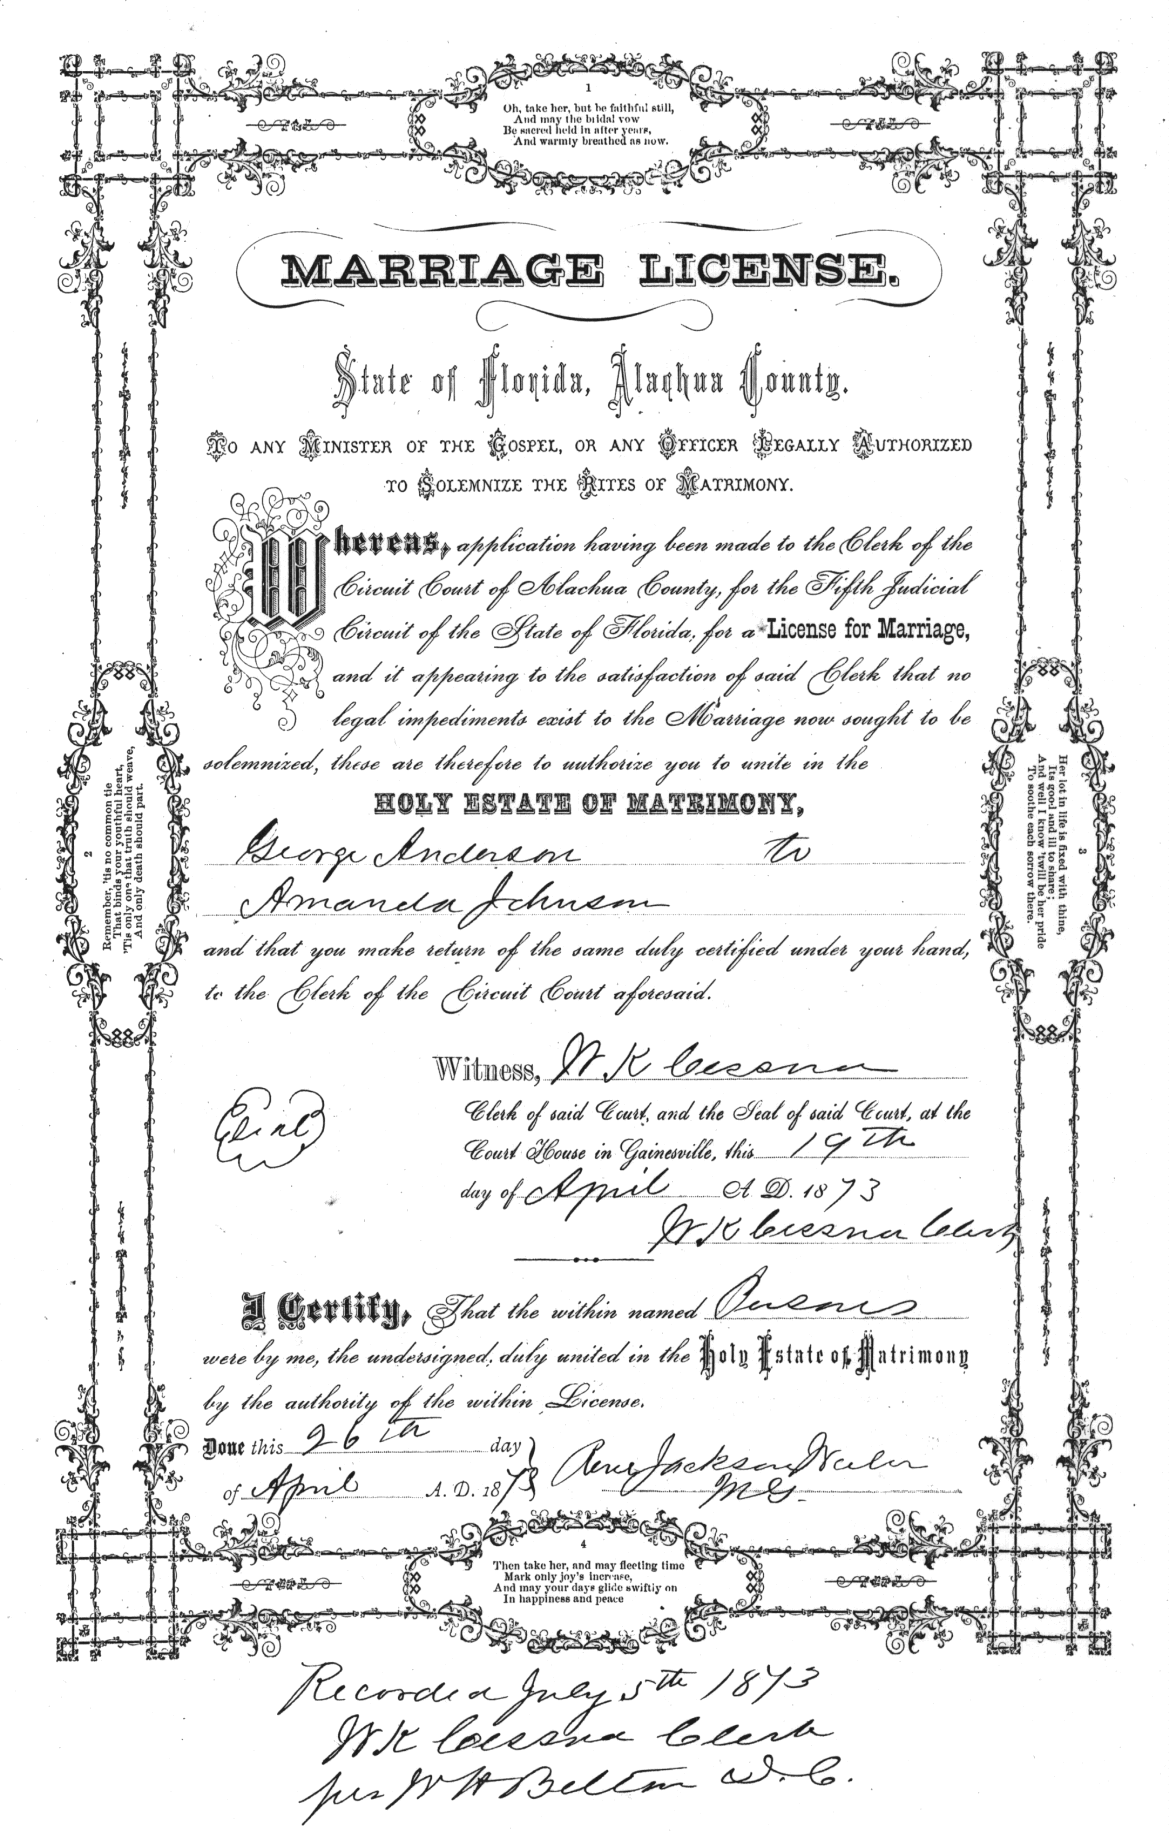 1
Oh, take her, but be faithful still,
And may the bridal vow
Be sacred held in after years,
And warmly breathed as now.
MARRIAGE LICENSE.
State of Florida, Alachua County.
TO ANY MINISTER OF THE GOSPEL, OR ANY OFFICER LEGALLY AUTHORIZED
TO SOLEMNIZE THE RITES OF MATRIMONY.
Whereas, application having been made to the Clerk of the
Circuit Court of Alachua County, for the Fifth Judicial
Circuit of the State of Florida, for a License for Marriage,
and it appearing to the satisfaction of said Clerk that no
legal impediments exist to the Marriage now sought to be
solemnized, these are therefore to authorize you to unite in the
HOLY ESTATE OF MATRIMONY,
George Anderson to
Amanda Johnson
and that you make return of the same duly certified under your hand,
to the Clerk of the Circuit Court aforesaid.
2
Remember, 'tis no common tie
That binds your youthful heart,
'Tis only one that truth should weave,
And only death should part.
3
Her lot in life is fixed with thine,
Its good and ill to share;
And well I know 'twill be her pride
To soothe each sorrow there.
Witness, W K Cessna
Seal
Clerk of said Court, and the Seal of said Court, at the
Court House in Gainesville, this 19th
day of April A. D. 1873
W K Cessna Clerk
I Certify, That the within named Persons
were by me, the undersigned, duly united in the Holy Estate of Matrimony
by the authority of the within License.
Done this 26th day
of April A. D. 1873
Jackson
M G.
4
Then take her, and may fleeting time
Mark only joy's increase,
And may your days glide swiftly on
In happiness and peace
Recorded July 5th 1873
W K Cessna Clerk
per W H Belton D. C.